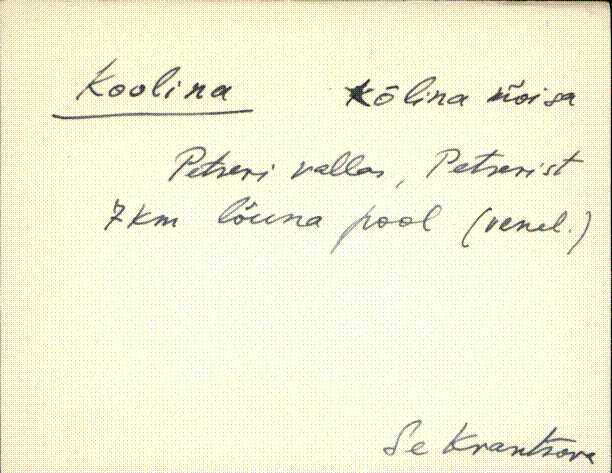 Koolina kõlina mõisa
Petseri vallas, Petserist
7 km lõuna pool (venel.)
Se Krantsova